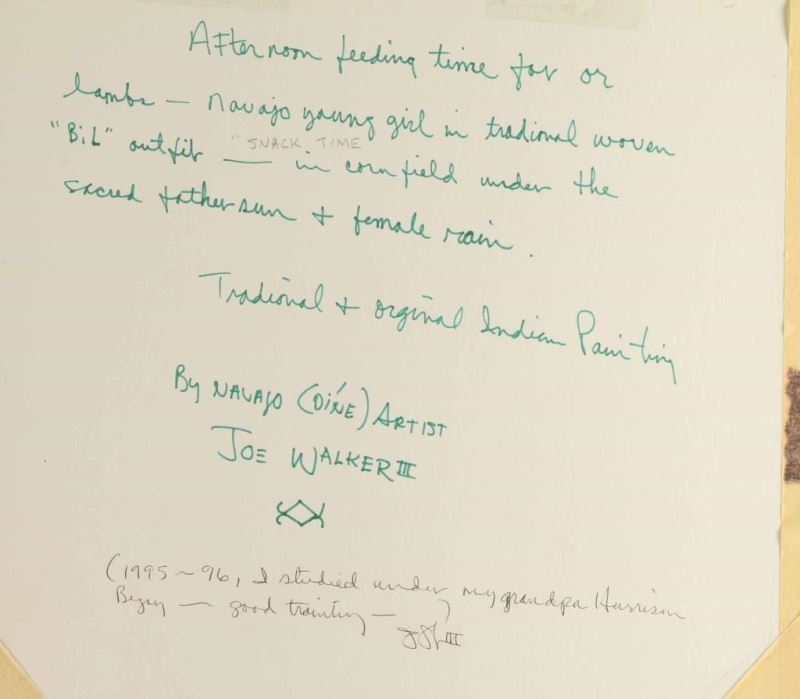 Afternoon feeding time for or
lambs — Navajo young girl in tradional woven
"BiL" outfit — in corn field under the
"SNACK TIME
sacred father sun + female rain.
Tradional + orginal Indian Painting
By NAVAJO (DiNÉ) ARTIST
JOE WALKER III
(1995~96, I studied under my grandpa Harrison
Begay — good training —
III